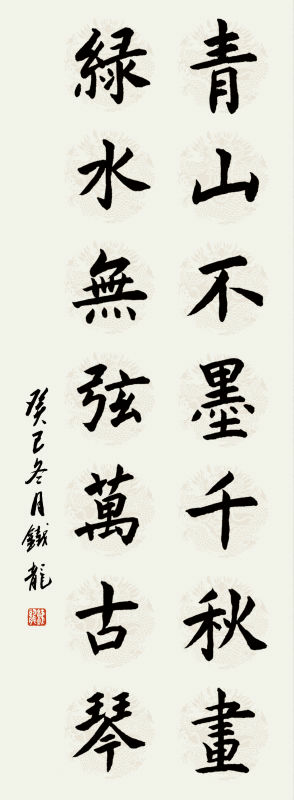 青山不墨千秋畫
緑水無弦萬古琴
癸巳冬月鐵龍